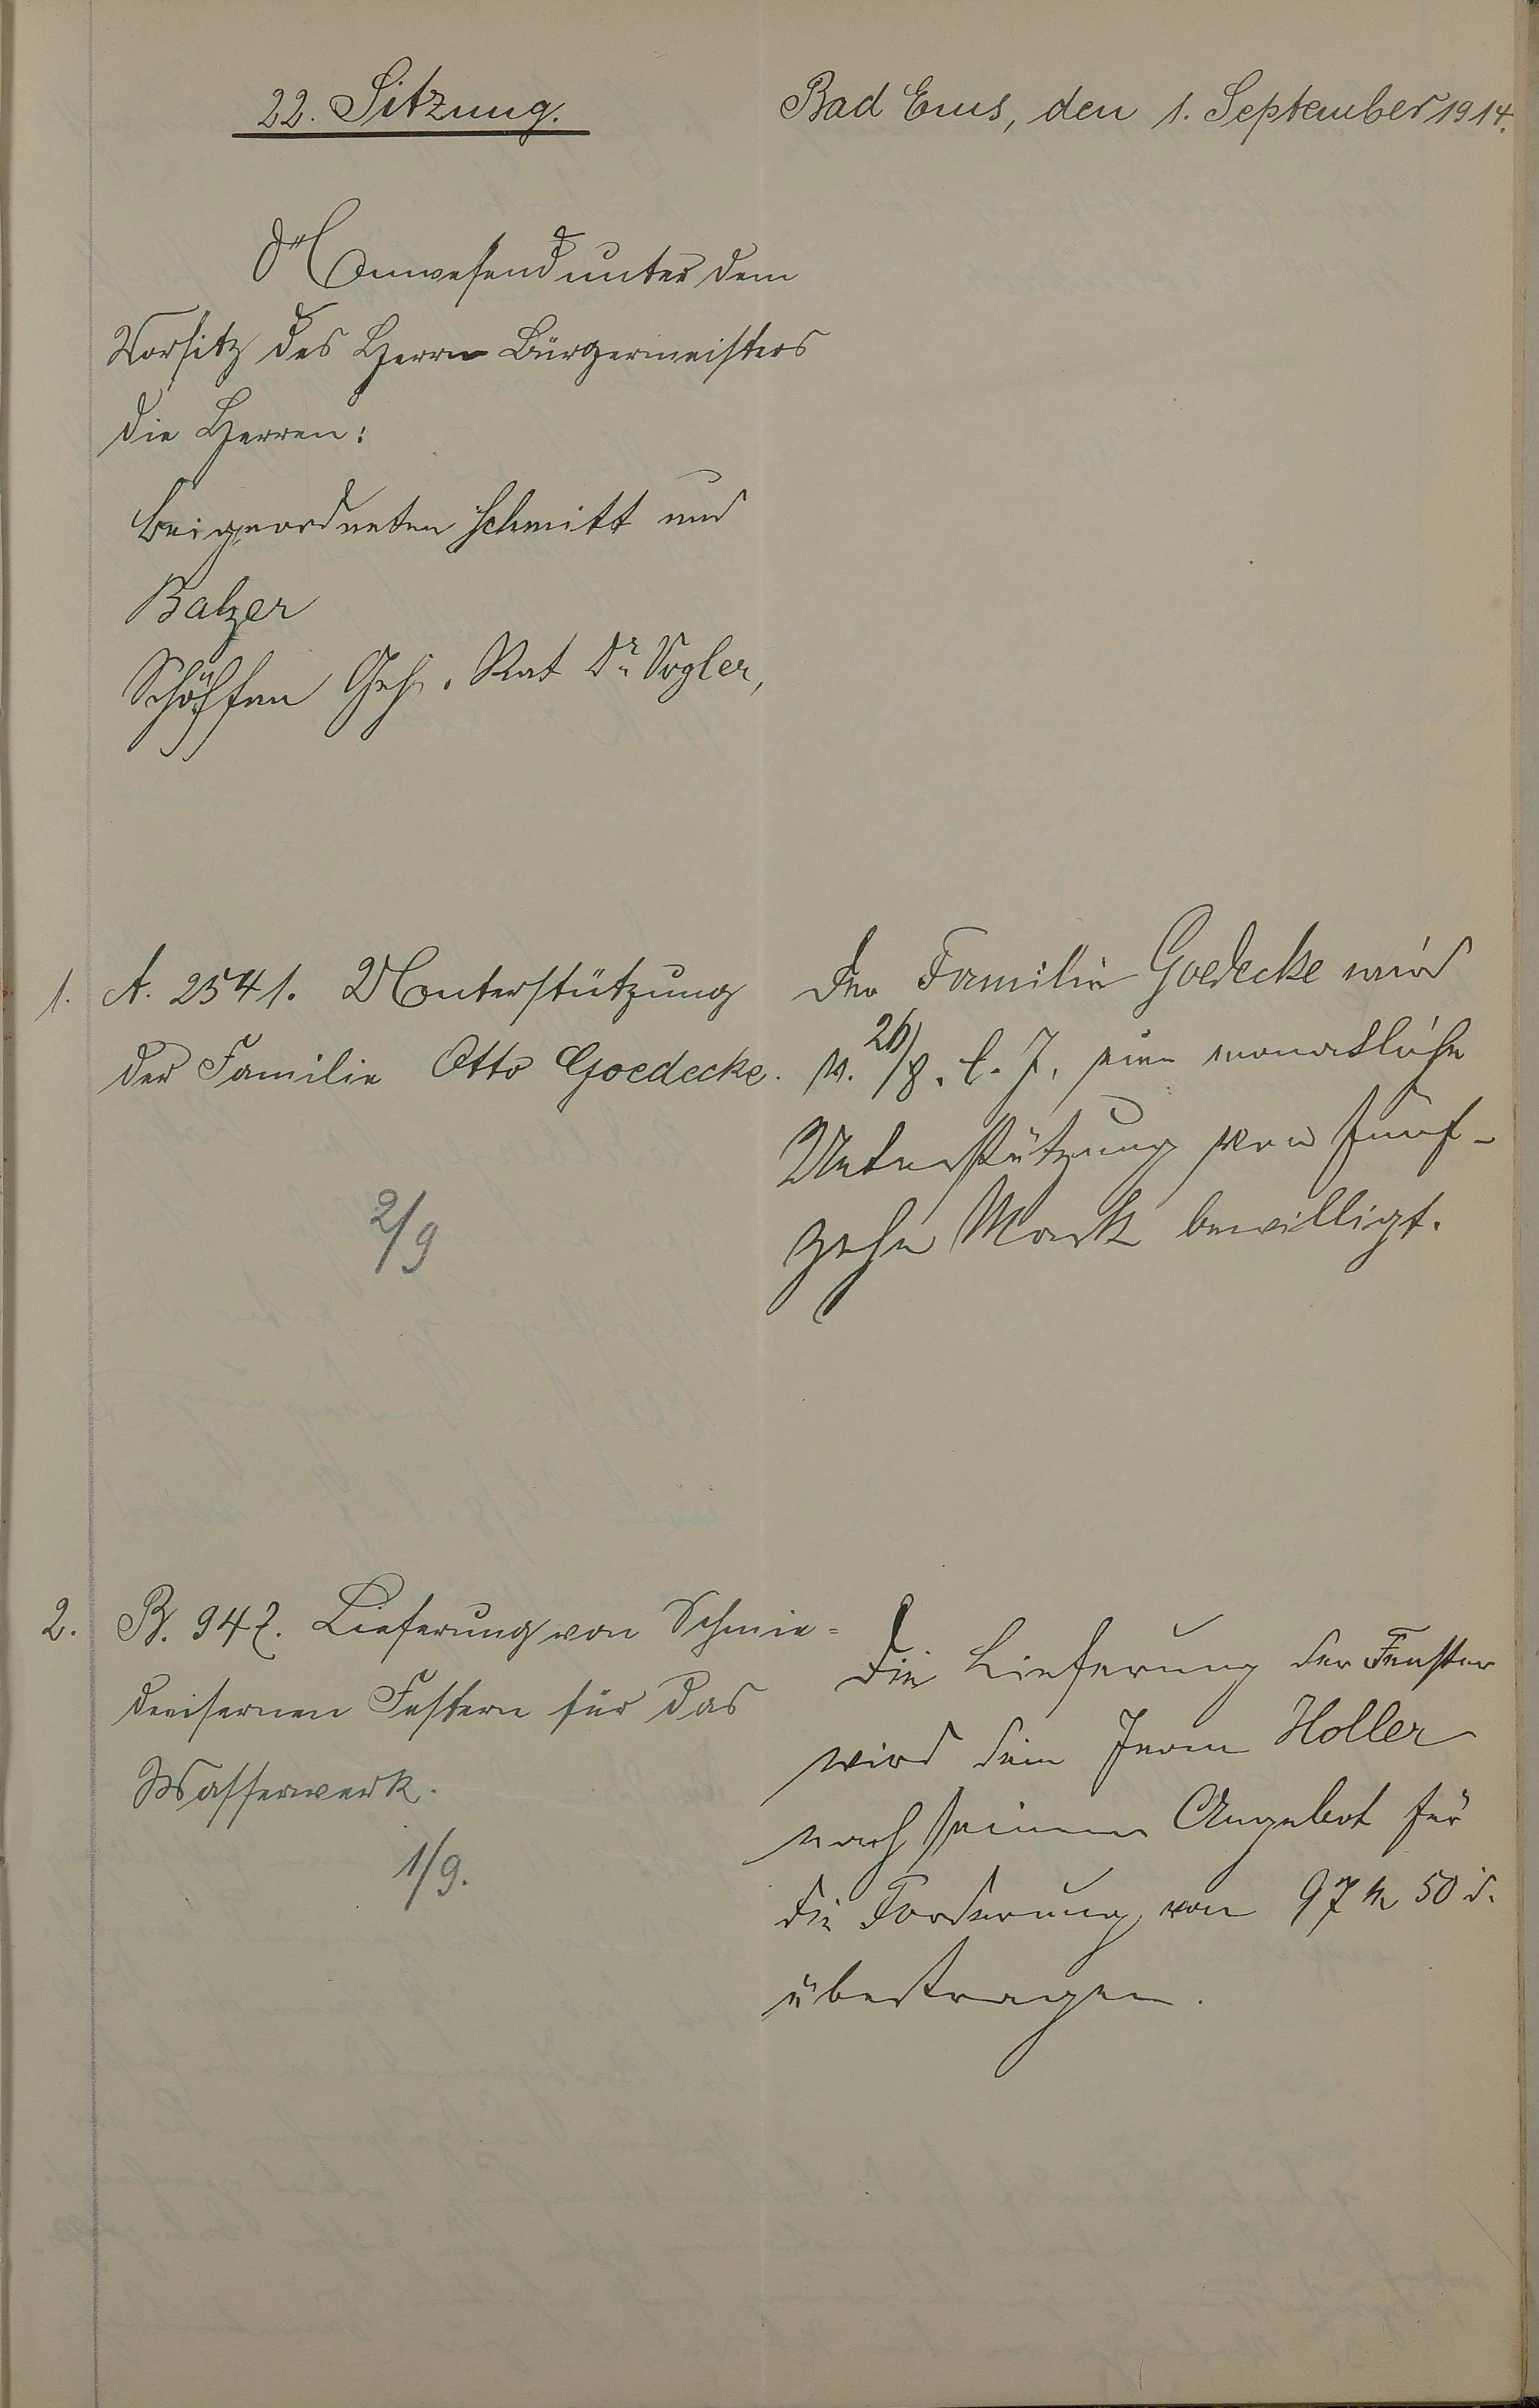 22. Sitzung.
Bad Ems, den 1. September 1914.
Anwesend unter dem
Vorsitz des Herrn Bürgermeisters
die Herren:
Beigeordneten Schmitt und
Balzer
Schöffen Geh. Rat Dr. Vogler,
1. A. 2541. Unterstützung
der Familie Otto Goedecke.
2/9
Der Familie Goedecke wird
v. 26/8. l. J. eine monatliche
Unterstützung von fünf-
zehn Mark bewilligt.
2. B. 947. Lieferung von Schmie=
deeisernen Festern für das
Wasserwerk.
1/9.
Die Lieferung der Fenster
wird dem Herrn Holler
nach seinem Angebot für
die Forderung von 97 M 50 d.
übertragen.